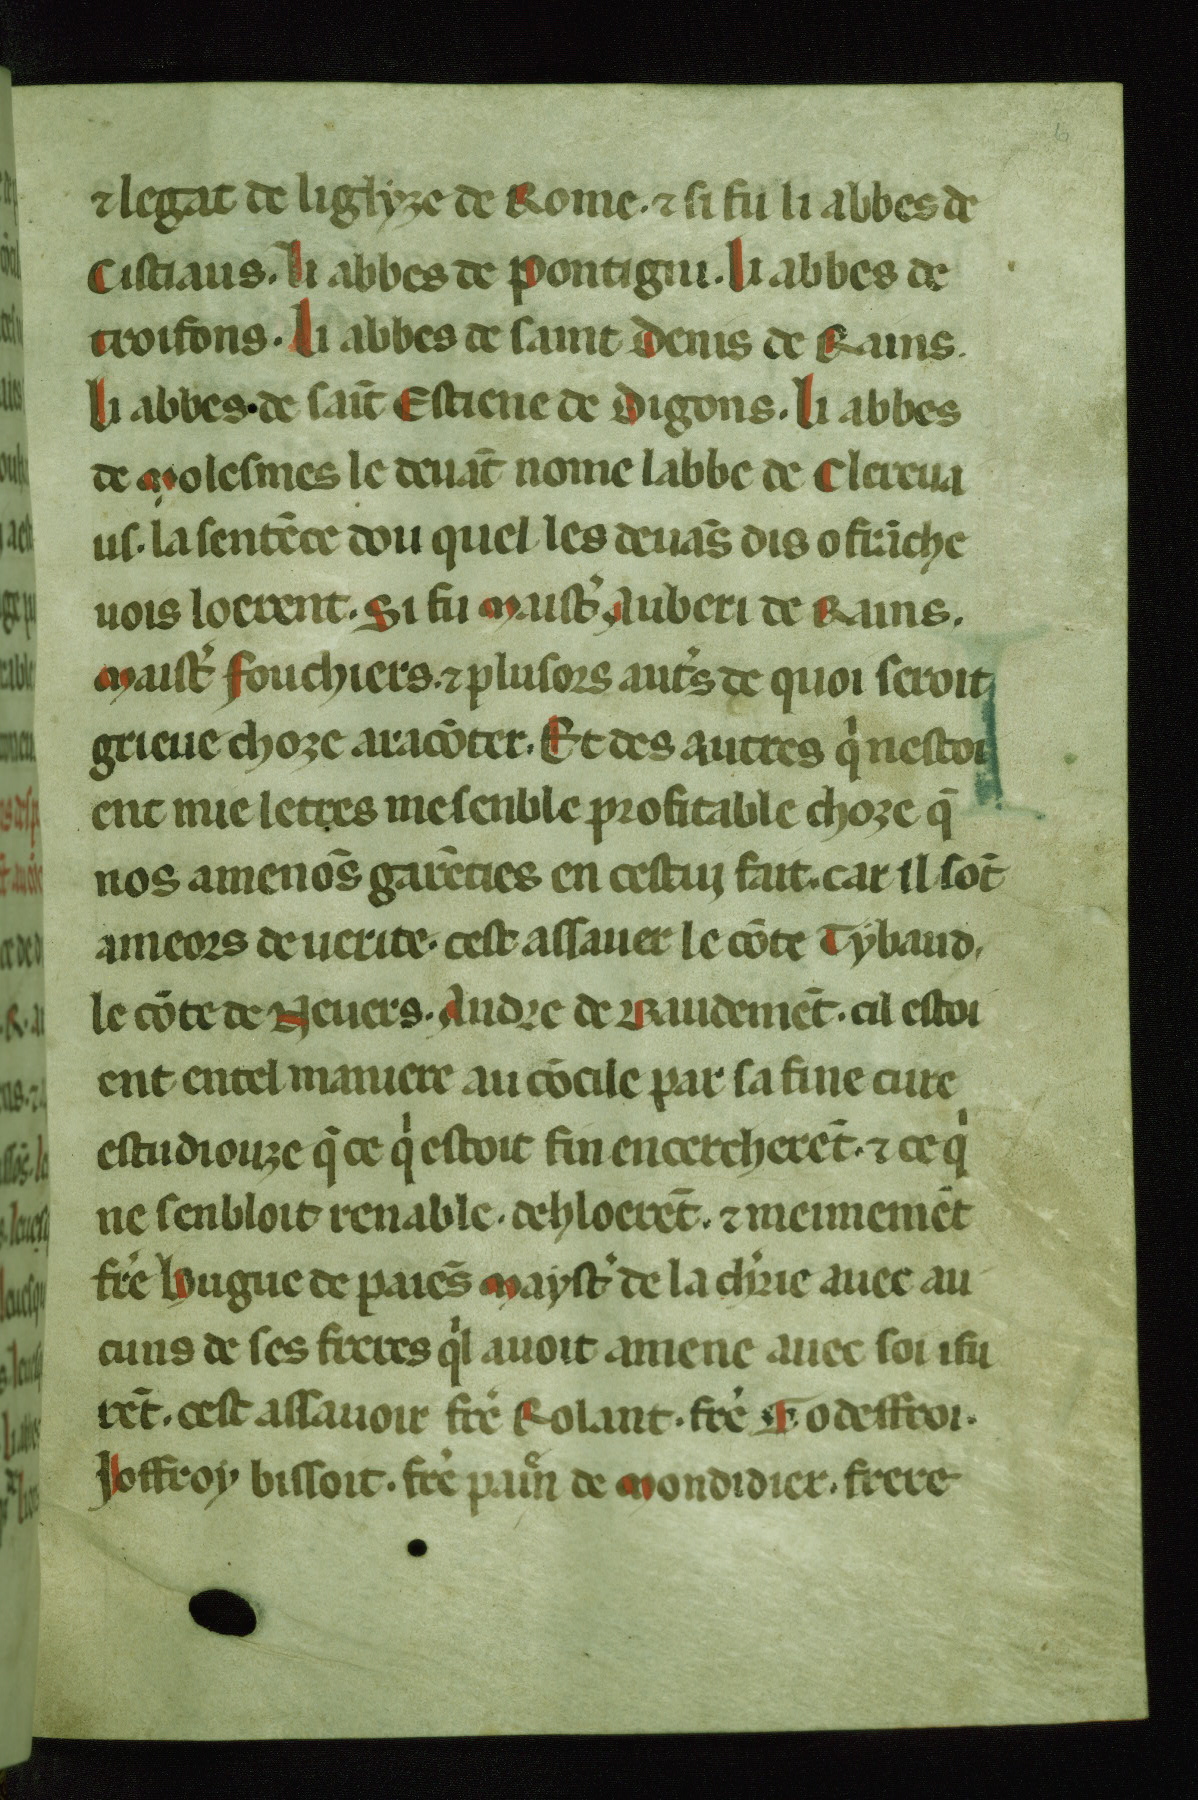 ⁊ legat de liglyze de Rome. ⁊ si fu li abbes de
Cistiaus. li abbes de pontigni. li abbes de
troifons. li abbes de saint Denis de Rains.
li abbes. de sait̄ Estiene de Digons. li abbes
de molesmes le deuāt nome labbe de Clereua
us. la sentēce dou quel les deuās dis o frāche
uois loerent. Si fu maist' Auberi de Rains.
maist' fouchiers. ⁊ plusors aut's de quoi seroit
grieue choze aracōter. Et des autres q'i nestoi
ent mie letres me senble profitable choze q̄
nos amenōs garēties en cestuj fait. car il sōt
ameors de uerite. cest assauer le cōte Tybaud.
le cōte de Neuers. Andre de Baudemēt. cil estoi
ent entel maniere au cōcile par sa fine cure
estudiouze q̄ ce q'i estoit fin encercherēt. ⁊ ce q'i
ne senbloit renable. dehloerēt. ⁊ meimemēt
fr'e hugue de paiēs mayst' de la ch'rie auec au
cuns de ses freres q'il auoit amene auec soi i fu
rēt. cest assauoir fr'e Rolant. fr'e Godeffroi.
Joffroy bissoit. fr'e paiē de mondidier. frere